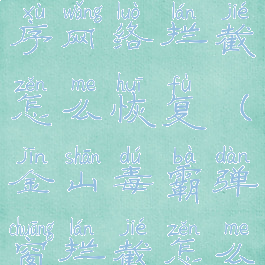 xù wǎng luò lán jié
序网络拦截
zěn me huī fù
怎么恢复（
jīn shān dú bà dàn
金山毒霸弹
chuāng lán jié zěn me
窗拦截怎么